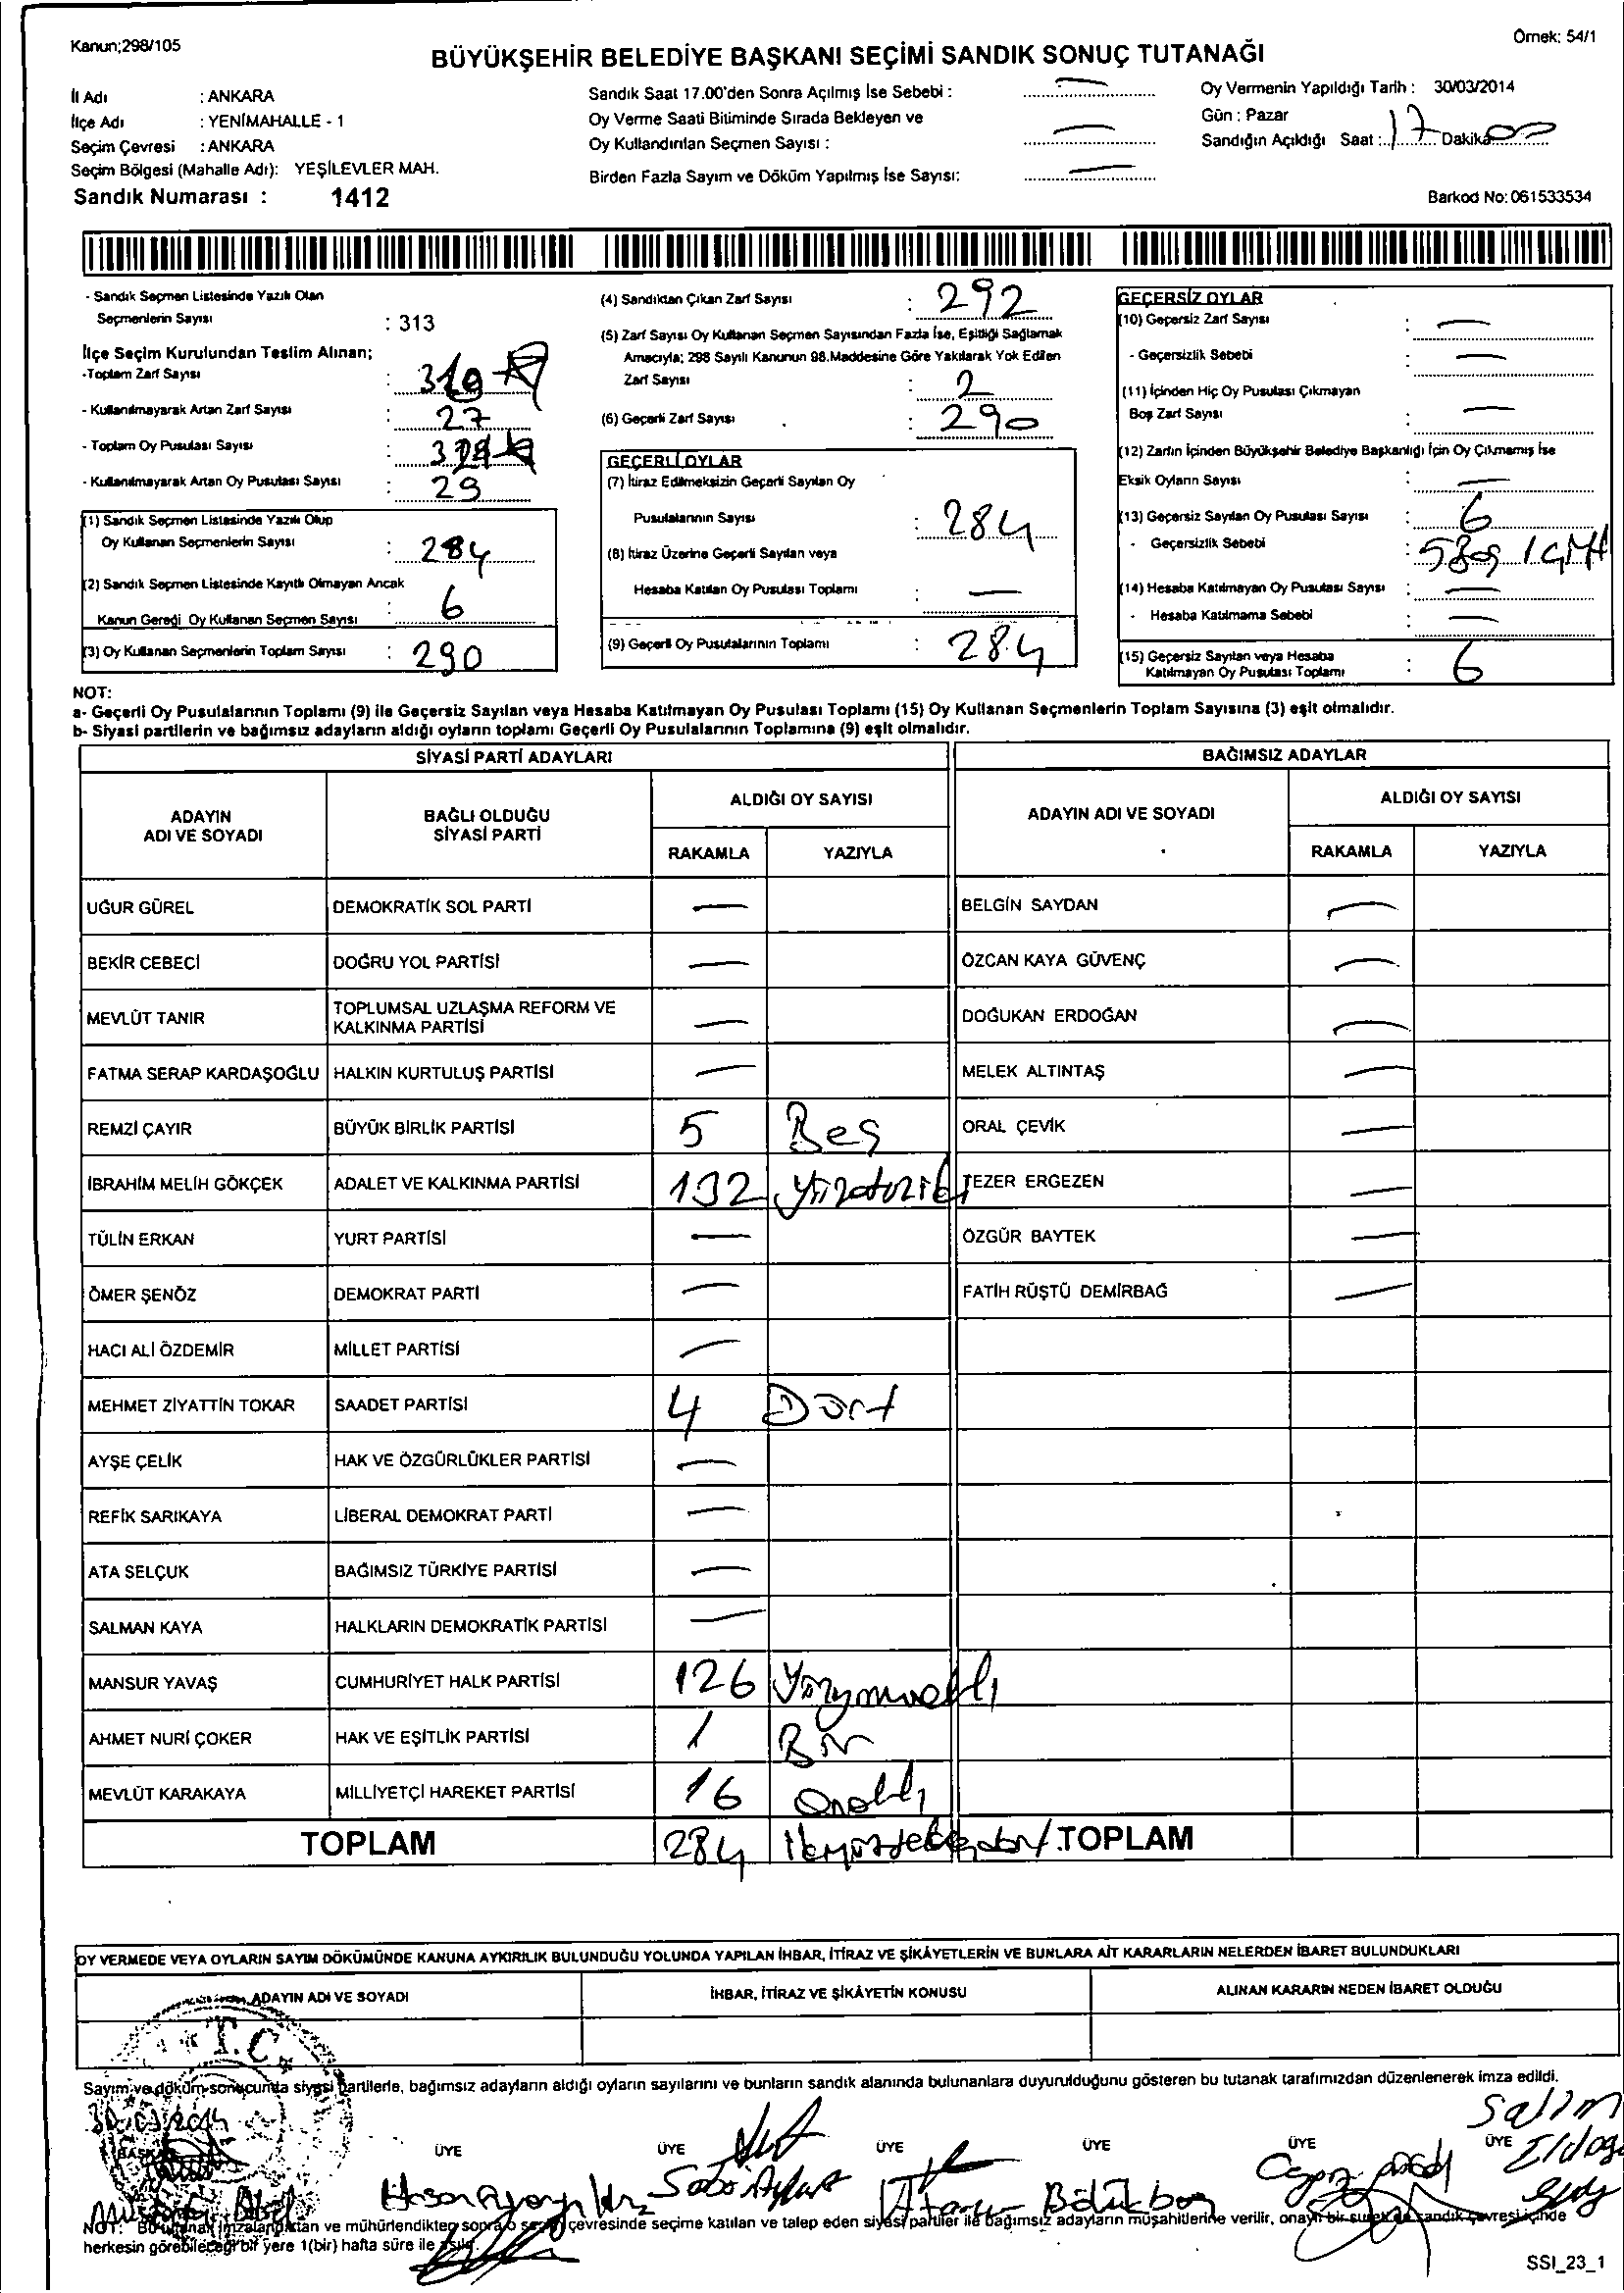 Kanun;298/105
Örnek: 54/1
BÜYÜKŞEHİR BELEDİYE BAŞKANI SEÇİMİ SANDIK SONUÇ TUTANAĞI
İl Adı : ANKARA
İlçe Adı : YENİMAHALLE - 1
Seçim Çevresi : ANKARA
Seçim Bölgesi (Mahalle Adı): YEŞİLEVLER MAH.
Sandık Numarası : 1412
Sandık Saat 17.00'den Sonra Açılmış İse Sebebi : —
Oy Verme Saati Bitiminde Sırada Bekleyen ve
Oy Kullandırılan Seçmen Sayısı : —
Birden Fazla Sayım ve Döküm Yapılmış İse Sayısı: —
Oy Vermenin Yapıldığı Tarih : 30/03/2014
Gün : Pazar
Sandığın Açıldığı Saat : 17 Dakika 00
Barkod No: 061533534
- Sandık Seçmen Listesinde Yazılı Olan
Seçmenlerin Sayısı : 313
İlçe Seçim Kurulundan Teslim Alınan;
-Toplam Zarf Sayısı :
- Kullanılmayarak Artan Zarf Sayısı : 27
- Toplam Oy Pusulası Sayısı :
- Kullanılmayarak Artan Oy Pusulası Sayısı : 29
(1) Sandık Seçmen Listesinde Yazılı Olup
Oy Kullanan Seçmenlerin Sayısı : 284
(2) Sandık Seçmen Listesinde Kayıtlı Olmayan Ancak
Kanun Gereği Oy Kullanan Seçmen Sayısı : 6
(3) Oy Kullanan Seçmenlerin Toplam Sayısı : 290
(4) Sandıktan Çıkan Zarf Sayısı : 292
(5) Zarf Sayısı Oy Kullanan Seçmen Sayısından Fazla İse, Eşitliği Sağlamak
Amacıyla; 298 Sayılı Kanunun 98.Maddesine Göre Yakılarak Yok Edilen
Zarf Sayısı : 2
(6) Geçerli Zarf Sayısı : 290
GEÇERLİ OYLAR
(7) İtiraz Edilmeksizin Geçerli Sayılan Oy
Pusulalarının Sayısı : 284
(8) İtiraz Üzerine Geçerli Sayılan veya
Hesaba Katılan Oy Pusulası Toplamı : —
(9) Geçerli Oy Pusulalarının Toplamı : 284
GEÇERSİZ OYLAR
(10) Geçersiz Zarf Sayısı : —
- Geçersizlik Sebebi : —
(11) İçinden Hiç Oy Pusulası Çıkmayan
Boş Zarf Sayısı : —
(12) Zarfın İçinden Büyükşehir Belediye Başkanlığı İçin Oy Çıkmamış İse
Eksik Oyların Sayısı : —
(13) Geçersiz Sayılan Oy Pusulası Sayısı : 6
- Geçersizlik Sebebi : 5 Boş 1
(14) Hesaba Katılmayan Oy Pusulası Sayısı : —
- Hesaba Katılmama Sebebi : —
(15) Geçersiz Sayılan veya Hesaba
Katılmayan Oy Pusulası Toplamı : 6
NOT:
a- Geçerli Oy Pusulalarının Toplamı (9) ile Geçersiz Sayılan veya Hesaba Katılmayan Oy Pusulası Toplamı (15) Oy Kullanan Seçmenlerin Toplam Sayısına (3) eşit olmalıdır.
b- Siyasi partilerin ve bağımsız adayların aldığı oyların toplamı Geçerli Oy Pusulalarının Toplamına (9) eşit olmalıdır.
SİYASİ PARTİ ADAYLARI BAĞIMSIZ ADAYLAR
ADAYIN
ADI VE SOYADI
BAĞLI OLDUĞU
SİYASİ PARTİ
ALDIĞI OY SAYISI
RAKAMLA YAZIYLA
ADAYIN ADI VE SOYADI
ALDIĞI OY SAYISI
RAKAMLA YAZIYLA
UĞUR GÜREL DEMOKRATİK SOL PARTİ — BELGİN SAYDAN —
BEKİR CEBECİ DOĞRU YOL PARTİSİ — ÖZCAN KAYA GÜVENÇ —
MEVLÜT TANIR TOPLUMSAL UZLAŞMA REFORM VE
KALKINMA PARTİSİ — DOĞUKAN ERDOĞAN —
FATMA SERAP KARDAŞOĞLU HALKIN KURTULUŞ PARTİSİ — MELEK ALTINTAŞ —
REMZİ ÇAYIR BÜYÜK BİRLİK PARTİSİ 5 Beş ORAL ÇEVİK —
İBRAHİM MELİH GÖKÇEK ADALET VE KALKINMA PARTİSİ 132 Yüzotuziki TEZER ERGEZEN —
TÜLİN ERKAN YURT PARTİSİ — ÖZGÜR BAYTEK —
ÖMER ŞENÖZ DEMOKRAT PARTİ — FATİH RÜŞTÜ DEMİRBAĞ —
HACI ALİ ÖZDEMİR MİLLET PARTİSİ —
MEHMET ZİYATTİN TOKAR SAADET PARTİSİ 4 Dört
AYŞE ÇELİK HAK VE ÖZGÜRLÜKLER PARTİSİ —
REFİK SARIKAYA LİBERAL DEMOKRAT PARTİ —
ATA SELÇUK BAĞIMSIZ TÜRKİYE PARTİSİ —
SALMAN KAYA HALKLARIN DEMOKRATİK PARTİSİ —
MANSUR YAVAŞ CUMHURİYET HALK PARTİSİ 126 Yüzyirmialtı
AHMET NURİ ÇOKER HAK VE EŞİTLİK PARTİSİ 1 Bir
MEVLÜT KARAKAYA MİLLİYETÇİ HAREKET PARTİSİ 16 Onaltı
TOPLAM 284 İkiyüzseksendört TOPLAM
OY VERMEDE VEYA OYLARIN SAYIM DÖKÜMÜNDE KANUNA AYKIRILIK BULUNDUĞU YOLUNDA YAPILAN İHBAR, İTİRAZ VE ŞİKÂYETLERİN VE BUNLARA AİT KARARLARIN NELERDEN İBARET BULUNDUKLARI
ADAYIN ADI VE SOYADI İHBAR, İTİRAZ VE ŞİKÂYETİN KONUSU ALINAN KARARIN NEDEN İBARET OLDUĞU
T.C.
Sayım ve döküm sonucunda siyasi partilerle, bağımsız adayların aldığı oyların sayılarını ve bunların sandık alanında bulunanlara duyurulduğunu gösteren bu tutanak tarafımızdan düzenlenerek imza edildi.
30/03/2014
BAŞKAN ÜYE ÜYE ÜYE ÜYE ÜYE ÜYE
Salim
NOT: Bu tutanak imzalandıktan ve mühürlendikten sonra o seçim çevresinde seçime katılan ve talep eden siyasi partiler ile bağımsız adayların müşahitlerine verilir, onaylı bir sureti de sandık çevresi içinde
herkesin görebileceği bir yere 1(bir) hafta süre ile asılır.
SSI_23_1